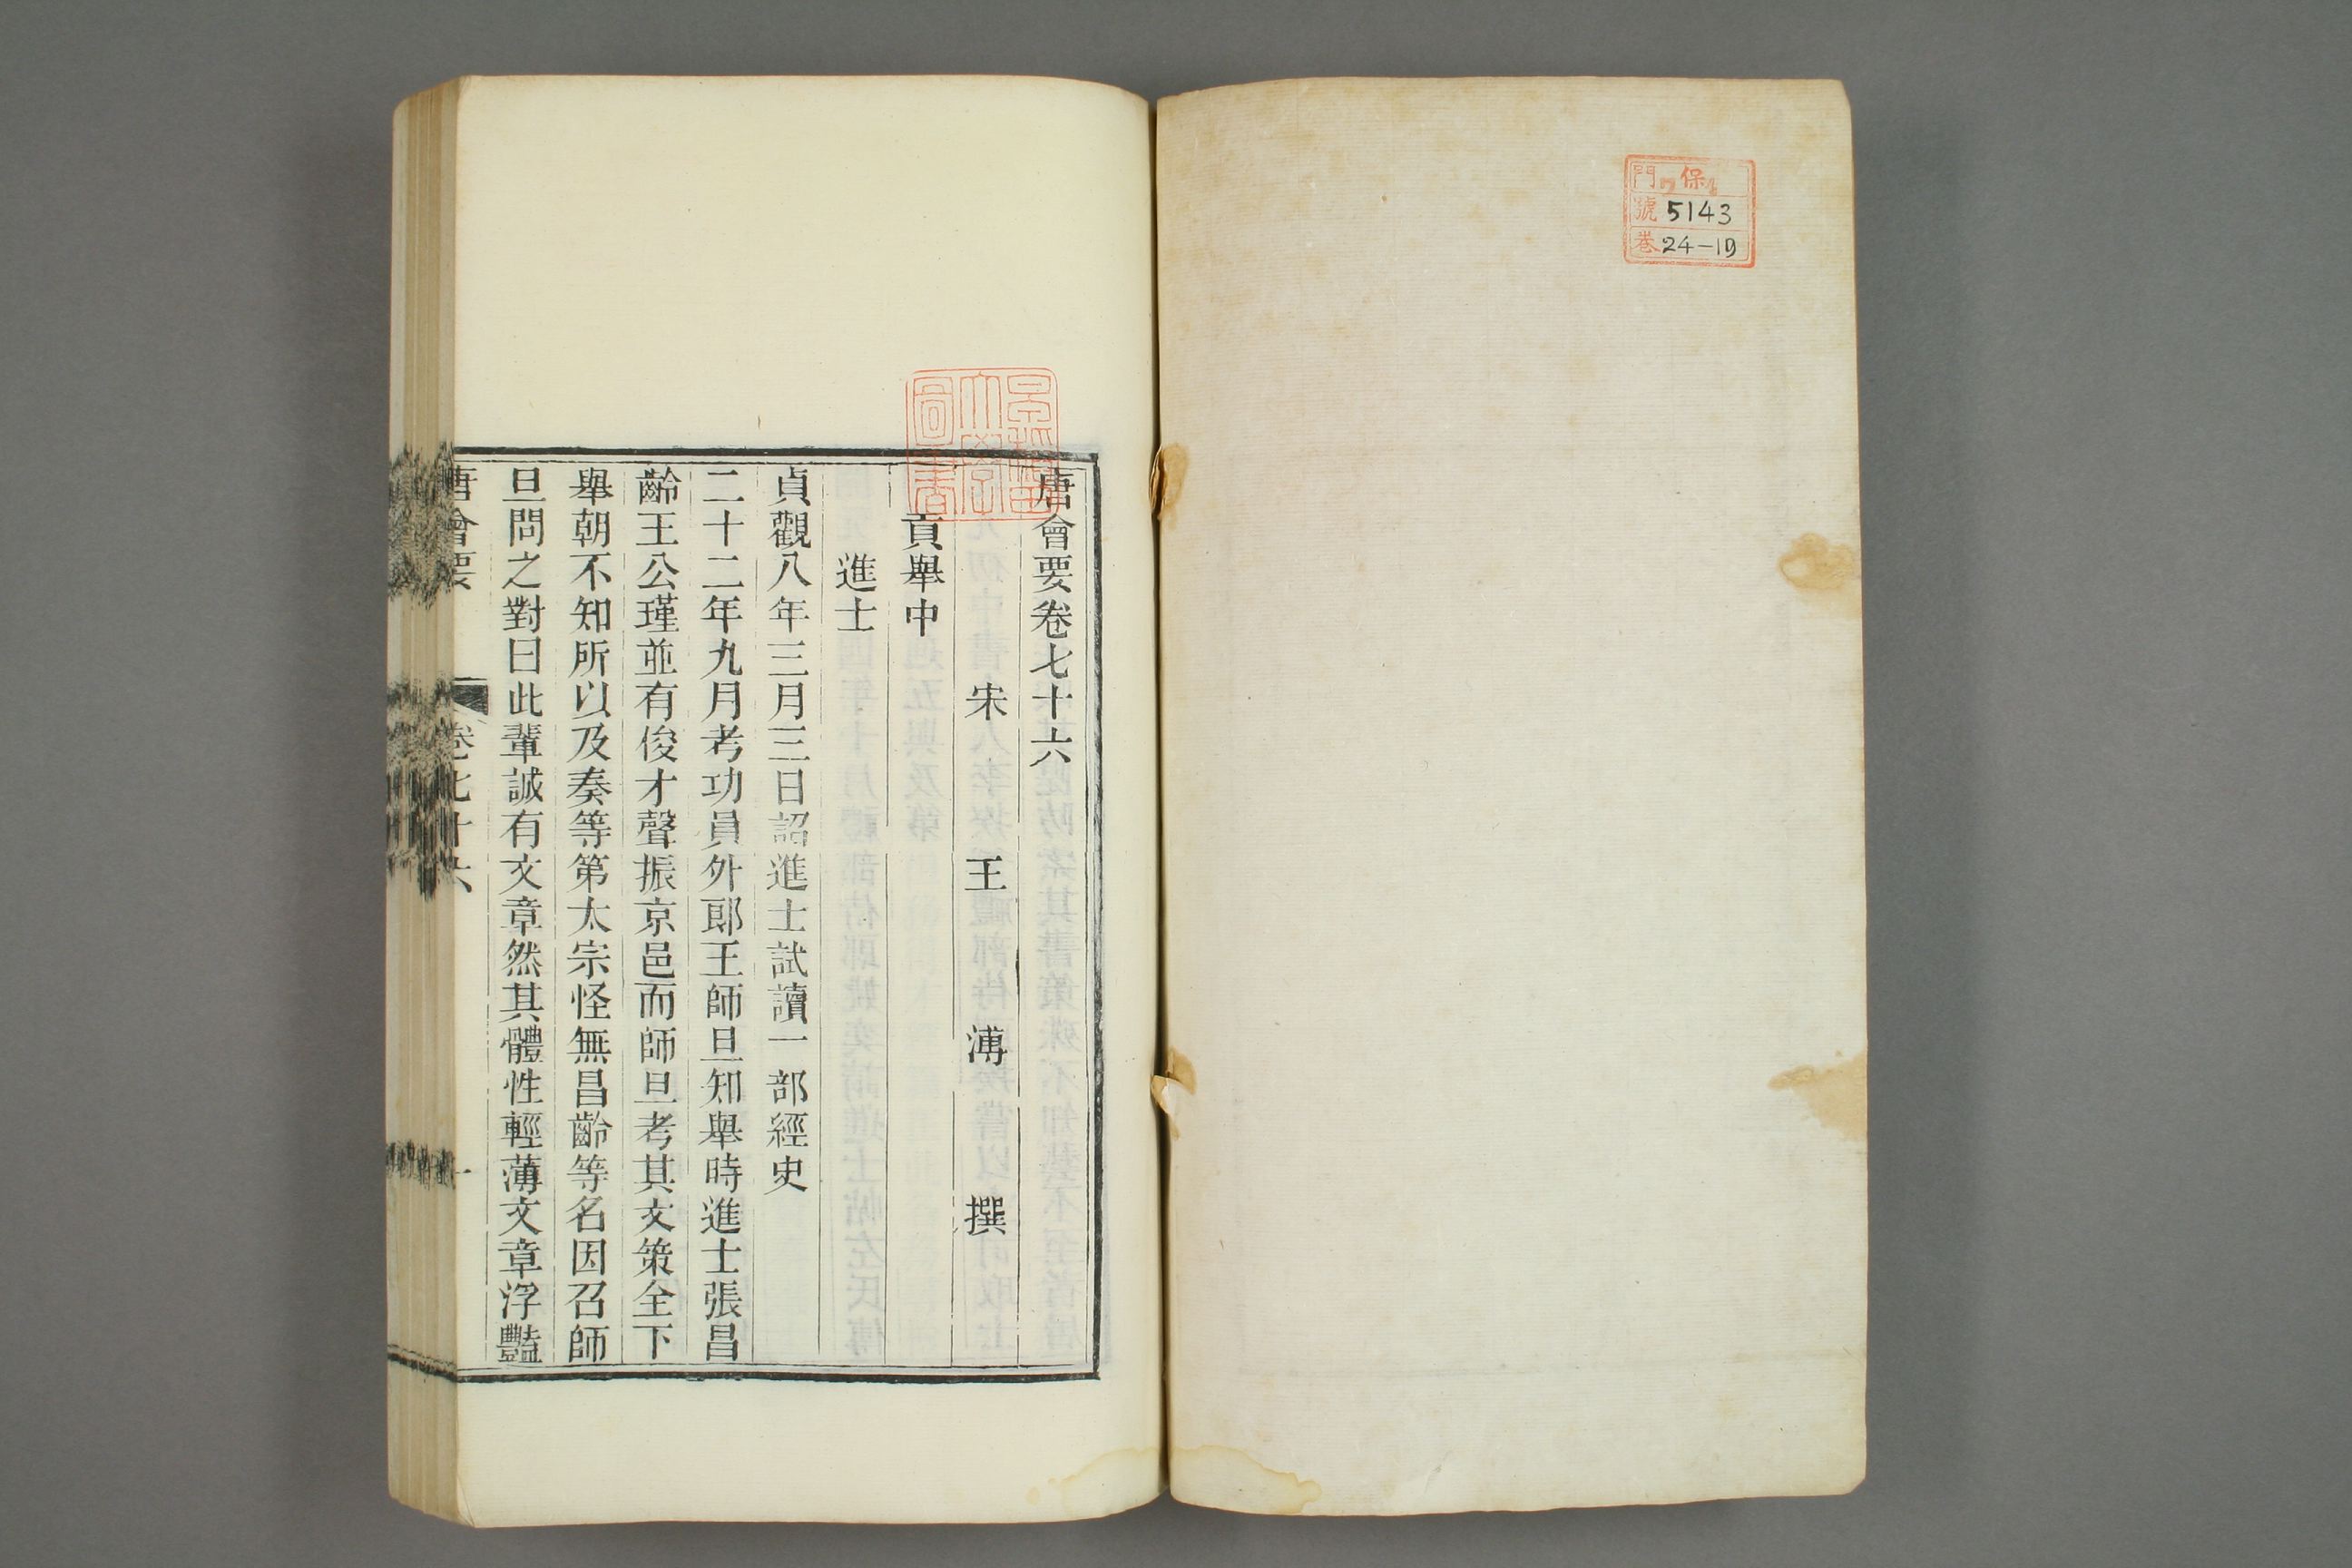 門 保
號 5143
巻 24-19
唐會要卷七十六
宋 王 溥 撰
貢舉中
進士
貞觀八年三月三日詔進士試讀一部經史
二十二年九月考功員外郎王師旦知舉時進士張昌
齡王公瑾並有俊才聲振京邑而師旦考其文策全下
舉朝不知所以及奏等第太宗怪無昌齡等名因召師
旦問之對曰此輩誠有文章然其體性輕薄文章浮豔
唐會要 卷七十六 一